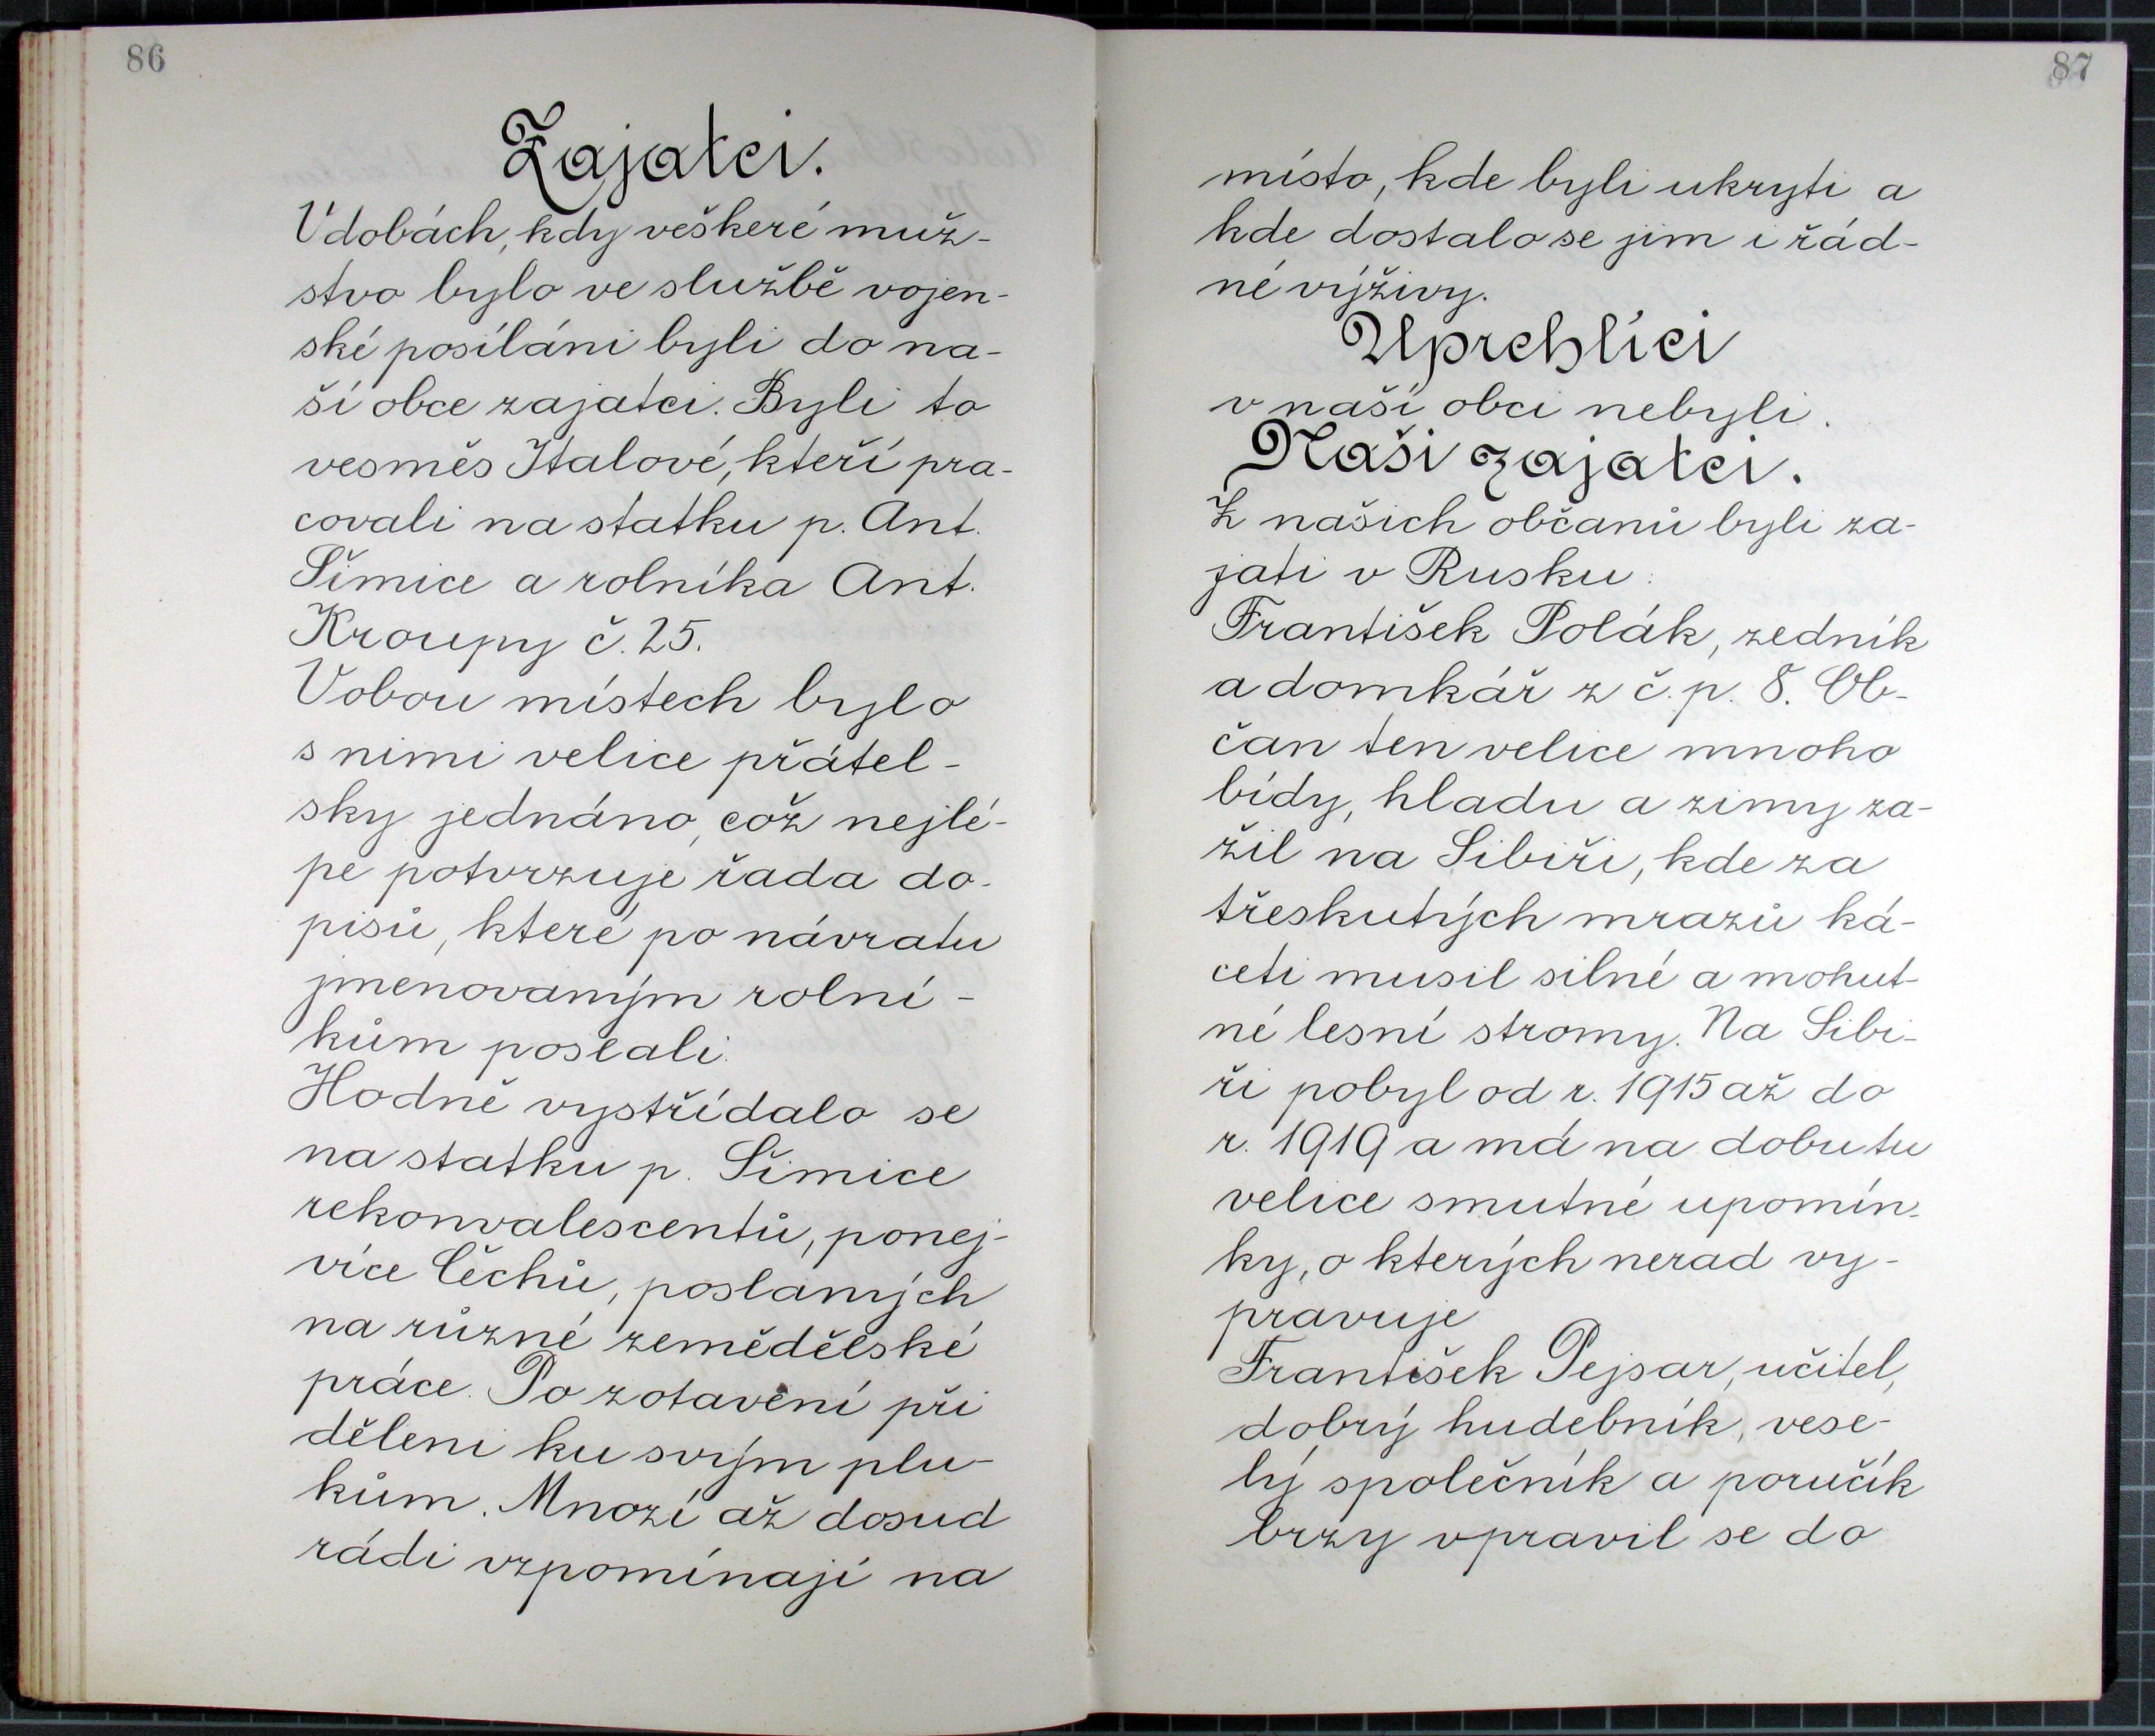 86
Zajatci.
V dobách, kdy veškeré muž-
stvo bylo ve službě vojen-
ské posíláni byli do na-
ší obce zajatci. Byli to
vesměs Italové, kteří pra-
covali na statku p. Ant.
Šimice a rolníka Ant.
Kroupy č. 25.
V obou místech bylo
s nimi velice přátel-
sky jednáno, což nejlé-
pe potvrzuje řada do-
pisů, které po návratu
jmenovaným rolní-
kům poslali.
Hodně vystřídalo se
na statku p. Šimice
rekonvalescentů, ponej-
více Čechů, poslaných
na různé zemědělské
práce. Po zotavení při
děleni ku svým plu-
kům. Mnozí až dosud
rádi vzpomínají na
87
místo, kde byli ukryti a
kde dostalo se jim i řád-
né výživy.
Uprchlíci
v naší obci nebyli.
Naši zajatci.
Z našich občanů byli za-
jati v Rusku:
František Polák, zedník
a domkář z č. p. 8. Ob-
čan ten velice mnoho
bídy, hladu a zimy za-
žil na Sibiři, kde za
třeskutých mrazů ká-
ceti musil silné a mohut-
né lesní stromy. Na Sibi-
ři pobyl od r. 1915 až do
r. 1919 a má na dobu tu
velice smutné upomín-
ky, o kterých nerad vy-
pravuje
František Pejsar, učitel,
dobrý hudebník, vese-
lý společník a poručík
brzy vpravil se do